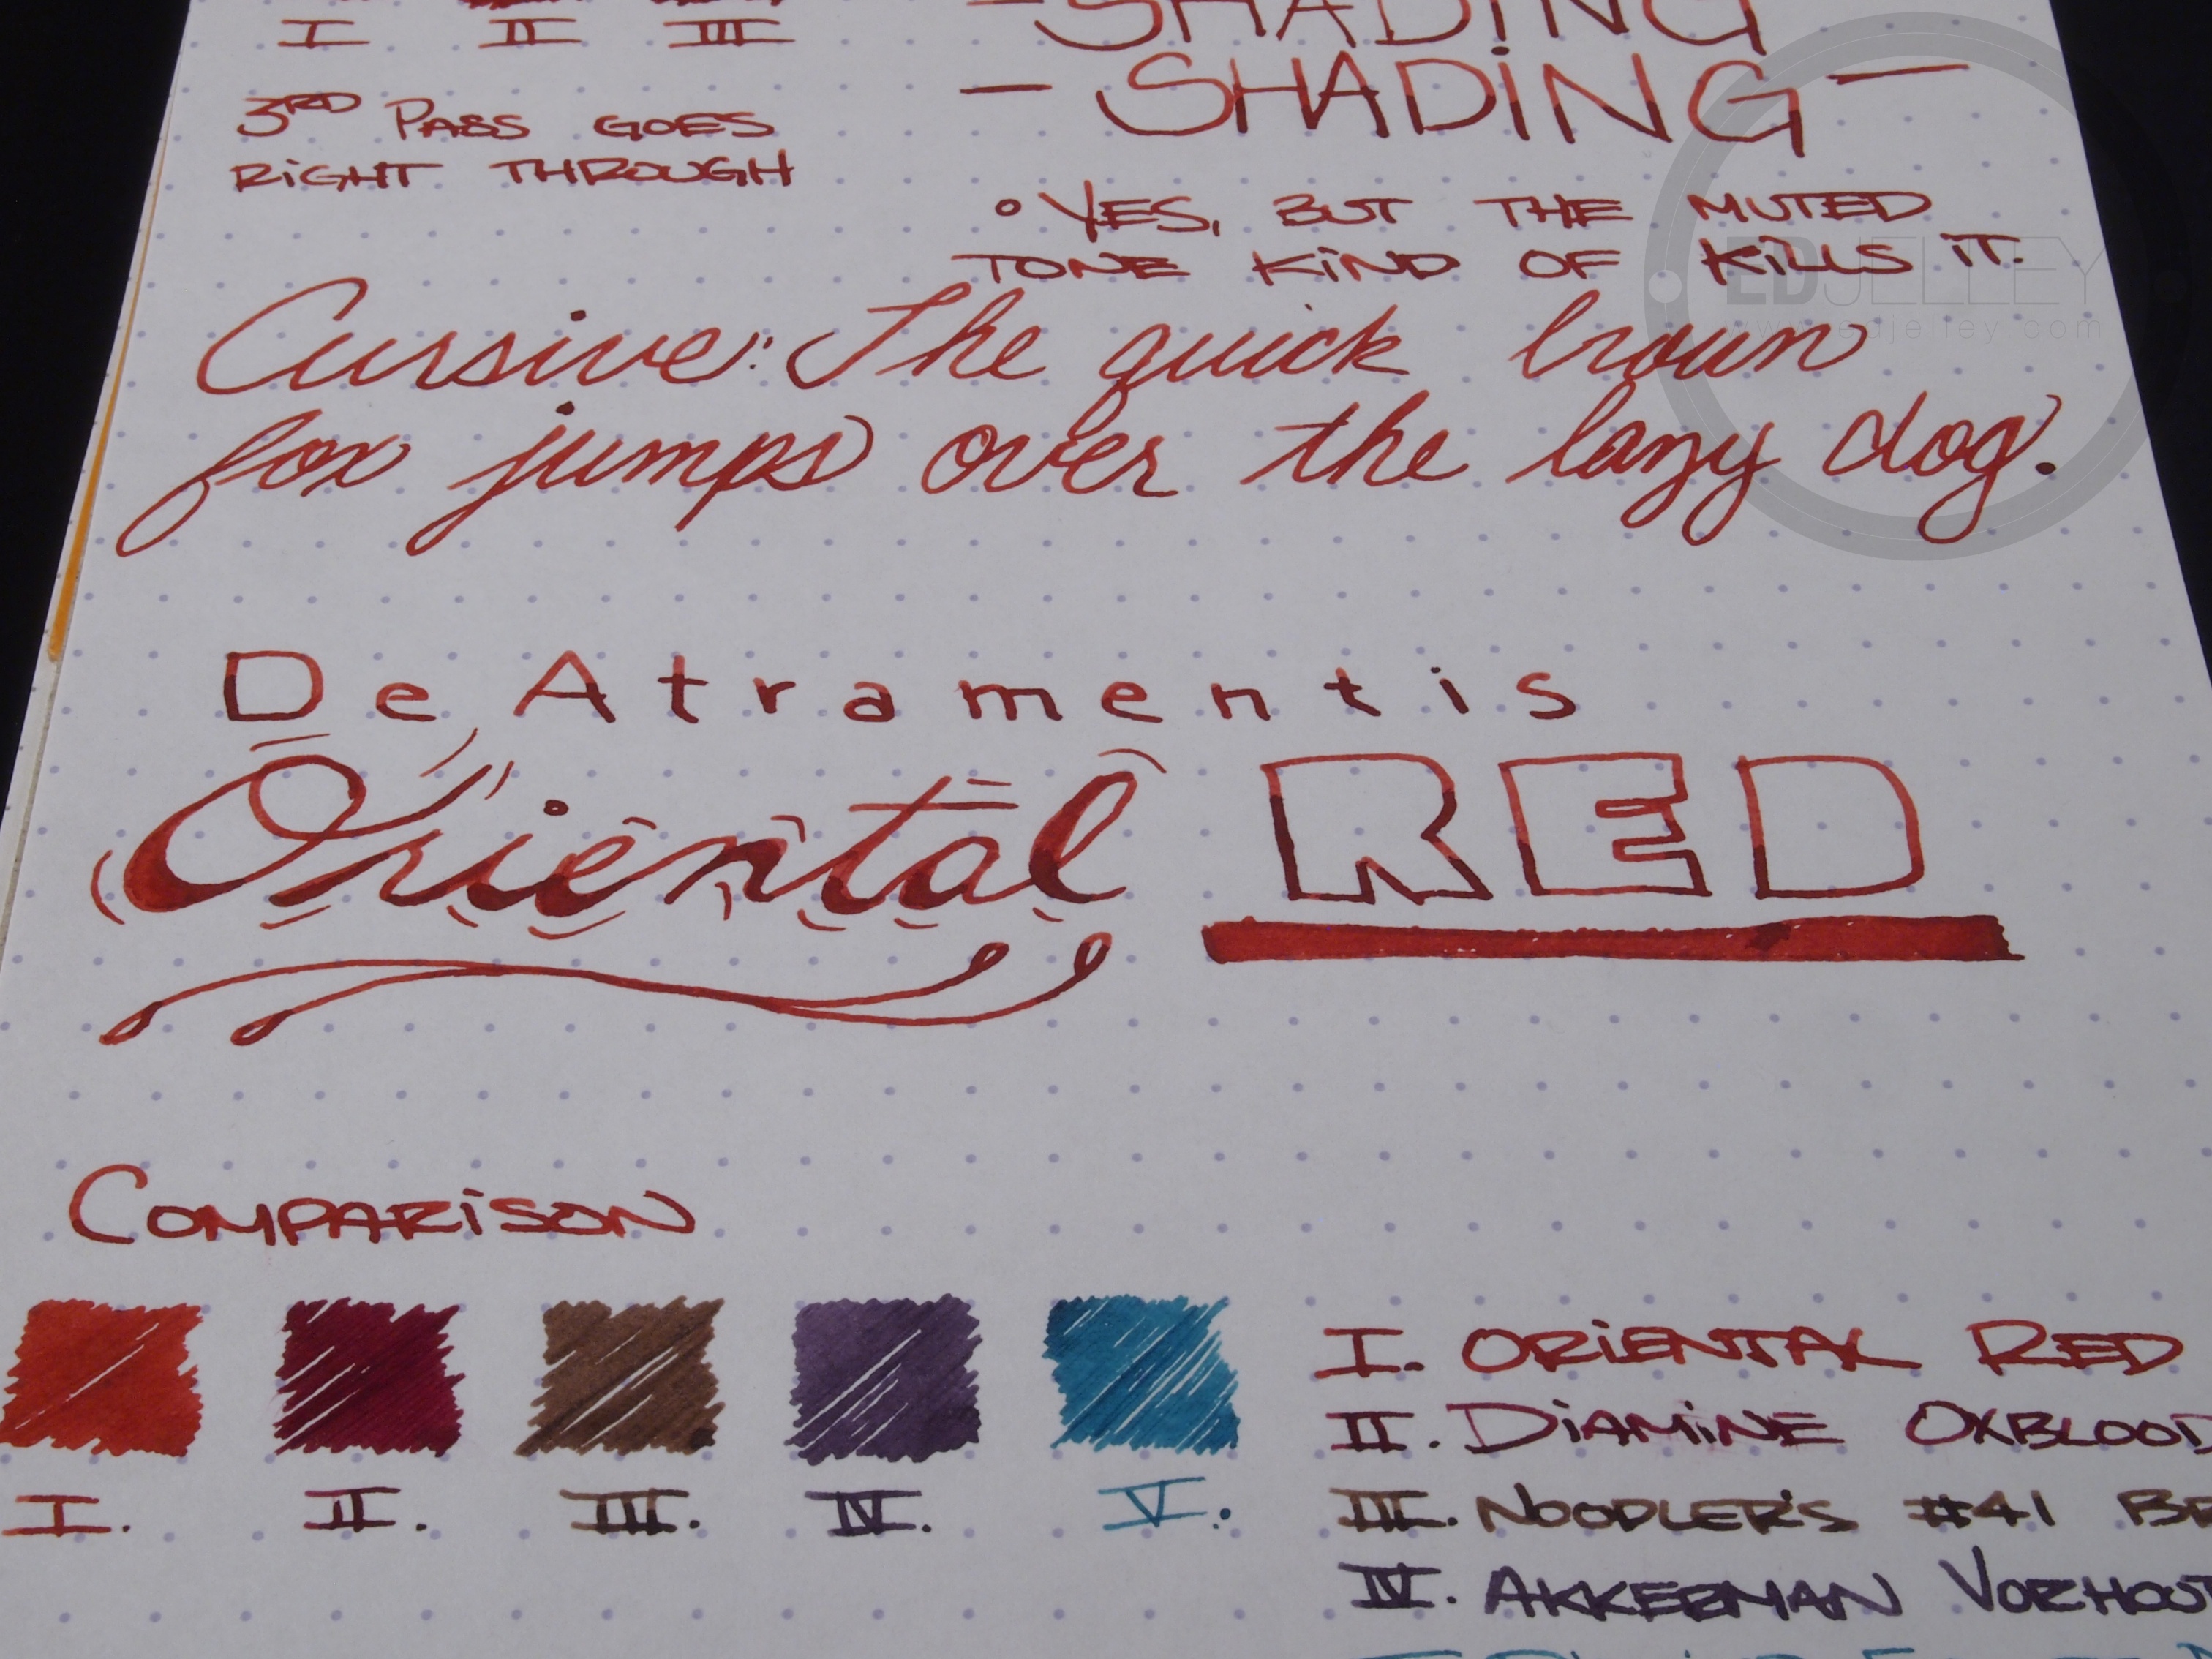 I II III
- SHADING
- SHADING -
3RD PASS GOES
RIGHT THROUGH
° YES, BUT THE MUTED
TONE KIND OF KILLS IT.
EDJELLEY
www.edjelley.com
Cursive: The quick brown
fox jumps over the lazy dog.
De Atramentis
Oriental RED
COMPARISON
I. II. III. IV. V.
I. ORIENTAL RED
II. DIAMINE OXBLOOD
III. NOODLER'S #41 BR
IV. AKKERMAN VORHOUT